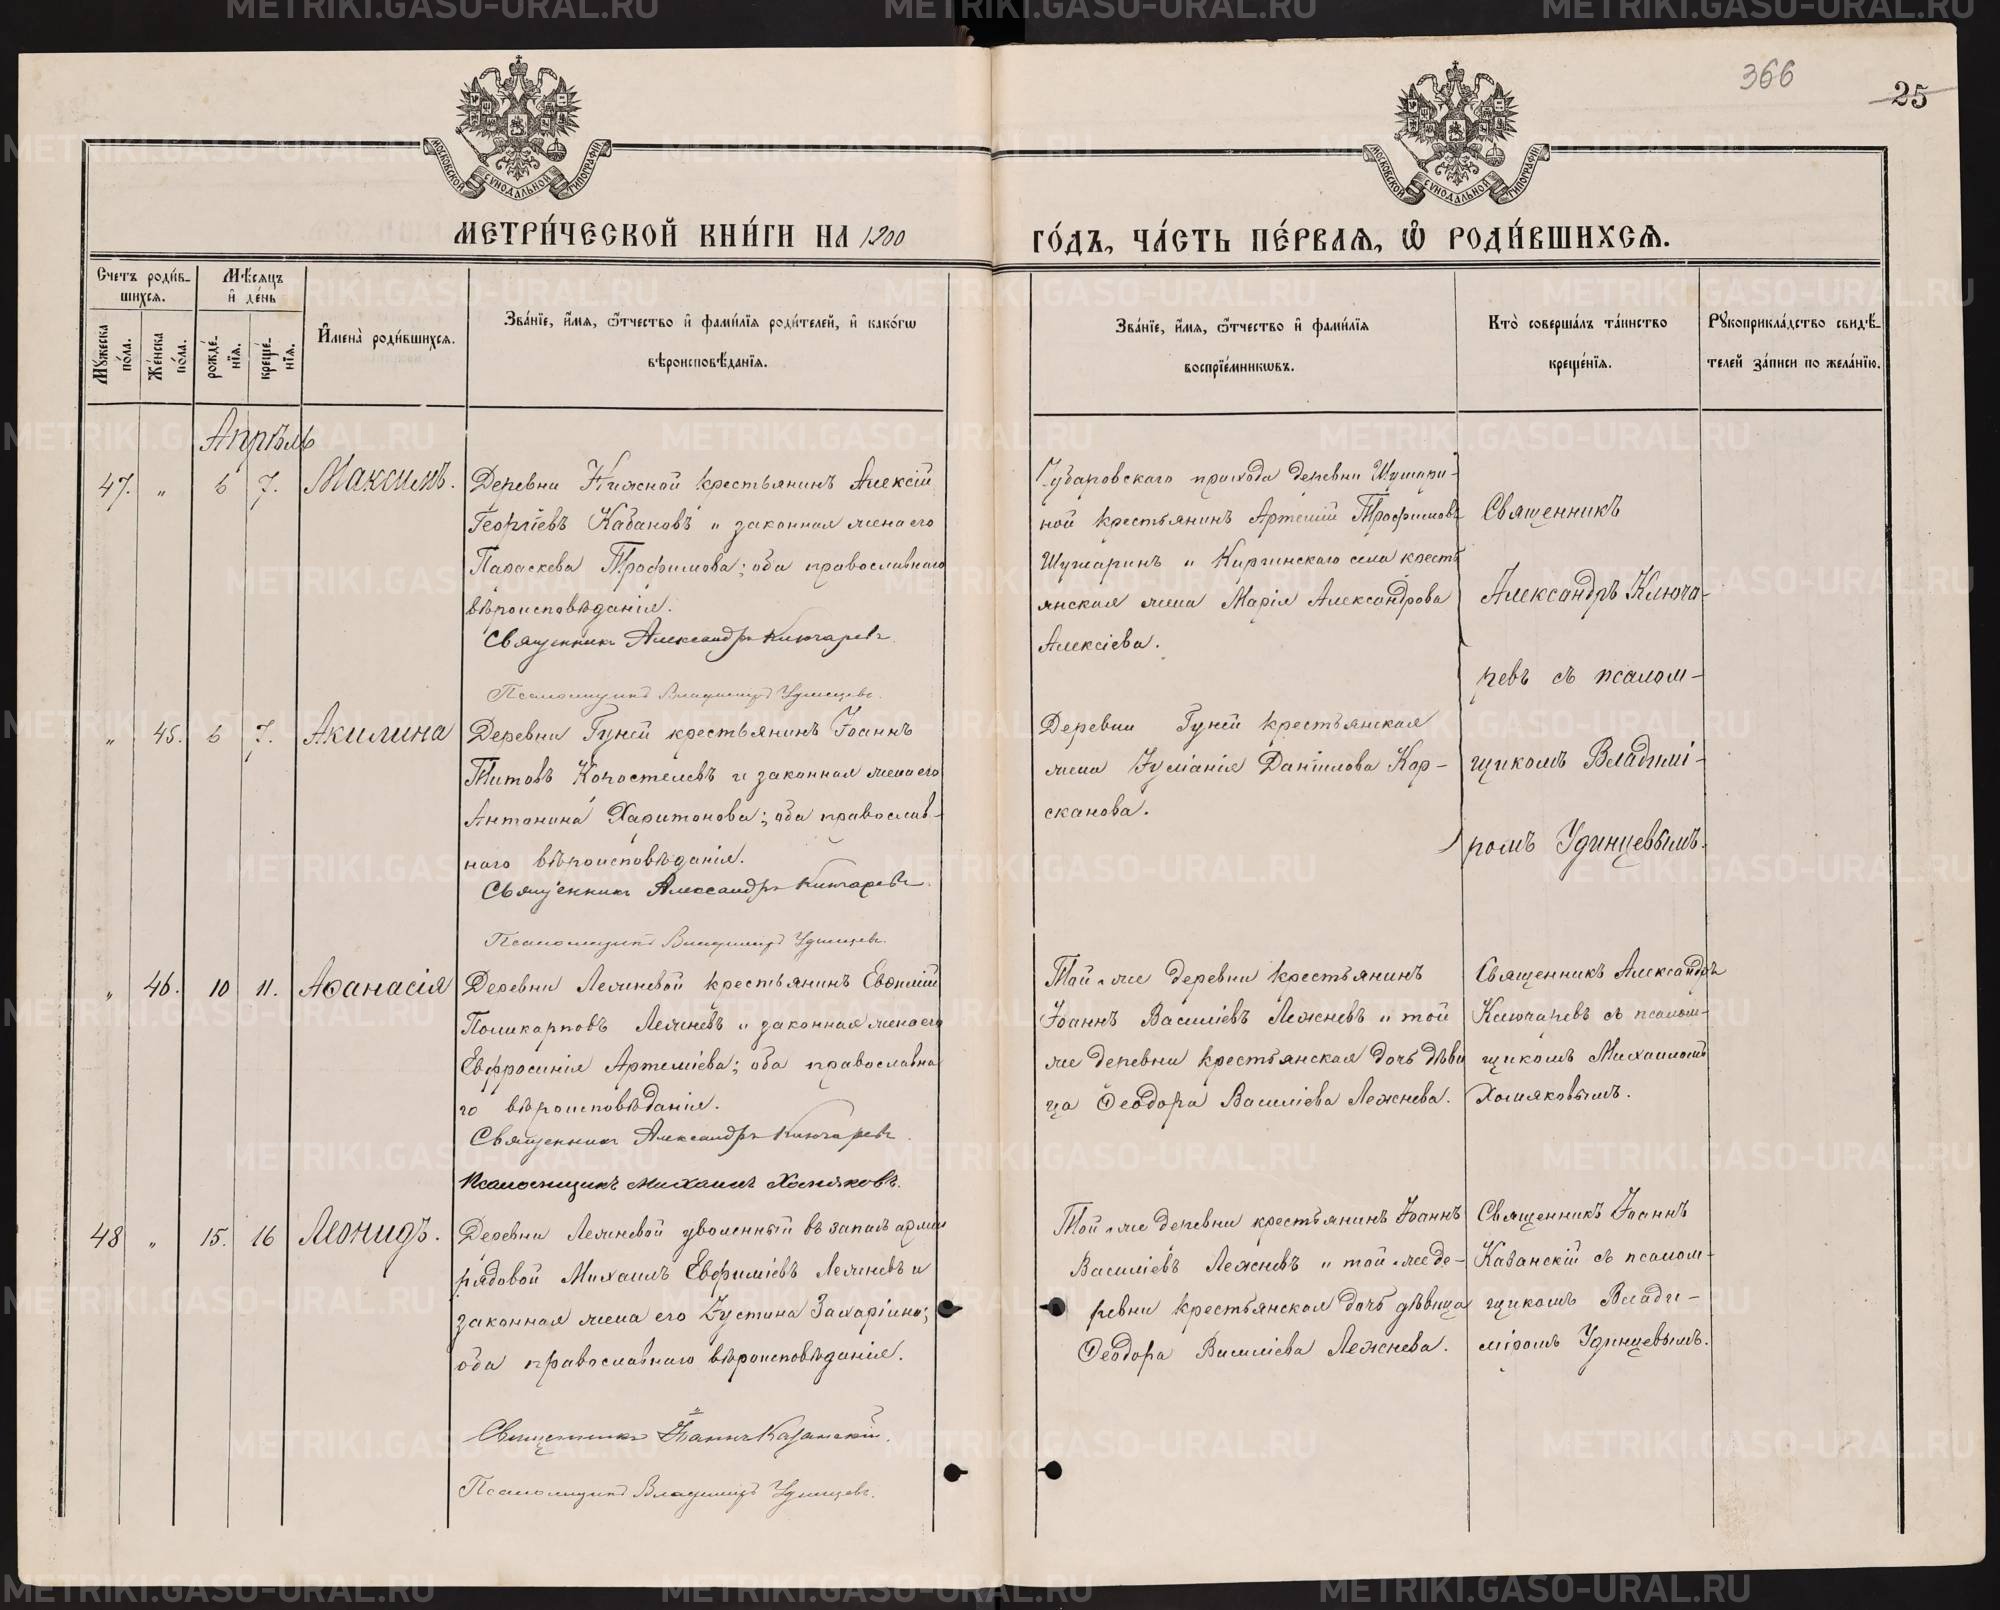 366
25
МОСКОВСКОЙ СѴНОДАЛЬНОЙ ТИПОГРАФІИ
МОСКОВСКОЙ СѴНОДАЛЬНОЙ ТИПОГРАФІИ
МЕТРИ́ЧЕСКОЙ КНИ́ГИ НА 1900
ГО́ДЪ, ЧА́СТЬ ПЕ́РВАѦ, Ѿ РОДИ́ВШИХСѦ.
Счетъ роди́в-
шихсѧ.
Мꙋжеска
по́ла.
Же́нска
по́ла.
Мѣ́сѧцъ
и҆ де́нь
рожде́-
нїѧ.
креще́-
нїѧ.
И҆мена̀ роди́вшихсѧ.
Зва́нїе, и҆́мѧ, ѻ҆́тчество и҆ фами́лїѧ роди́телей, и҆ како́гѡ
вѣроисповѣ́данїѧ.
Зва́нїе, и҆́мѧ, ѻ҆́тчество и҆ фами́лїѧ
воспрїе́мникѡвъ.
Кто̀ соверша́лъ та́инство
креще́нїѧ.
Рꙋкоприкла́дство свидѣ́-
телей за́писи по жела́нїю.
Апрѣль
47. „ 6 7. Максимъ.
Деревни Нижной крестьянинъ Алексій
Георгіевъ Кабановъ и законная жена его
Параскева Трофимова; оба православнаго
вѣроисповѣданія.
Священникъ Александръ Ключаревъ.
Псаломщикъ Владимиръ Удинцевъ.
Губаровскаго прихода деревни
ной крестьянинъ Артемій Трофимовъ
и Киргинскаго села кресть
янская жена Марія Александрова
Алексіева.
Священникъ
Александръ Ключа-
ревъ съ псалом-
щикомъ Владимі-
ромъ Удинцевымъ.
„ 45. 6 7. Акилина
Деревни Гуней крестьянинъ Іоаннъ
Титовъ Коростелевъ и законная жена его
Антонина Харитонова; оба православ-
наго вѣроисповѣданія.
Священникъ Александръ Ключаревъ.
Псаломщикъ Владимиръ Удинцевъ.
Деревни Гуней крестьянская
жена Іуліанія Даніилова Кор-
сканова.
„ 46. 10 11. Аѳанасія
Деревни Лежневой крестьянинъ Евѳимій
Поликарповъ Лежневъ и законная жена его
Евфросинія Артеміева; оба православна
го вѣроисповѣданія.
Священникъ Александръ Ключаревъ.
Псаломщикъ Михаилъ Хомяковъ.
Той-же деревни крестьянинъ
Іоаннъ Василіевъ Лежневъ и той
же деревни крестьянская дочь дѣви
ца Ѳеодора Василіева Лежнева.
Священникъ Александръ
Ключаревъ съ псалом-
щикомъ Михаиломъ
Хомяковымъ.
48 „ 15. 16 Леонидъ.
Деревни Лежневой уволенный въ запасъ арміи
рядовой Михаилъ Евфиміевъ Лежневъ и
законная жена его Іустина Захаріина;
оба православнаго вѣроисповѣданія.
Священникъ Іоаннъ Казанскій.
Псаломщикъ Владимиръ Удинцевъ.
Той-же деревни крестьянинъ Іоаннъ
Василіевъ Лежневъ и той-же де-
ревни крестьянская дочь дѣвица
Ѳеодора Василіева Лежнева.
Священникъ Іоаннъ
Казанскій съ псалом-
щикомъ Влади-
міромъ Удинцевымъ.